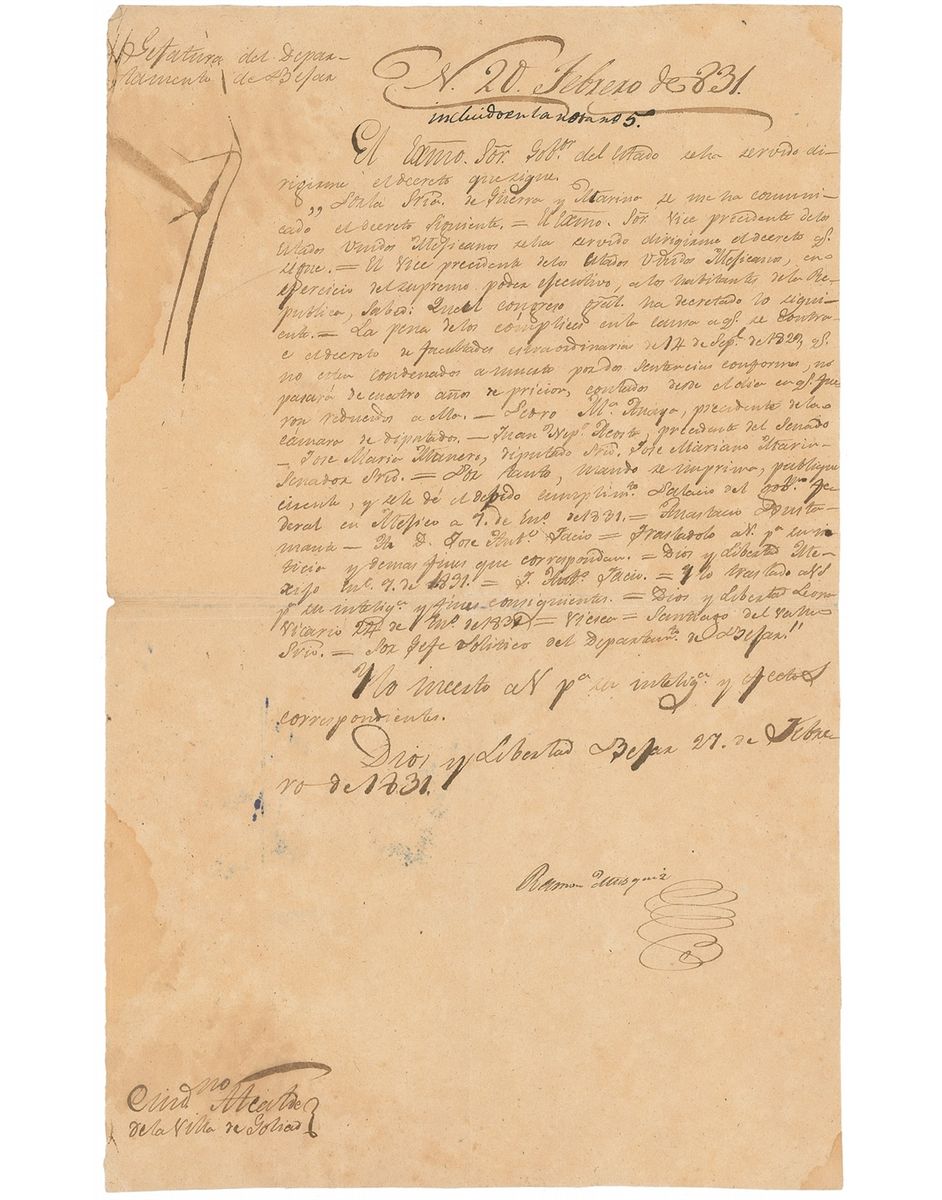 Gefatura del Depar-
tamento de Bejar
N. 20. Febrero de 831.
incluido en la nota no 5.
El Exmo. Sor. Gobor. del Estado se ha servido di-
rigirme el decreto que sigue.
„ Por la Sria. de Guerra y Marina se me ha comuni-
cado el decreto siguiente. = El Exmo. Sor. Vice precidente de los
Estados Unidos Mejicanos se ha servido dirigirme el decreto q.
sigue. = El Vice precidente de los Estados Unidos Mejicanos, en
ejercicio del supremo poder ejecutivo, a los habitantes de la Re-
publica, Sabed: Que el congreso gral. ha decretado lo siguí-
ente. = La pena de los cómplices en la causa a q. se contra-
e el decreto de facultades extraordinaria de 14 de Sepe. de 1829, q.
no esten condenados a muerte por dos sentencias conformes, no
pasará de cuatro años de pricion, contados desde el dia en q. fue
ron reducidos a ella. — Pedro Ma. Anaya, precidente de la
cámara de diputados. — Juan Nepo. Acosta, precidente del Senado
— Jose Maria Manero, diputado Srio. Jose Mariano Marin
Senador Srio. = Por tanto, mando se imprima, publique
circule, y se le dé el debido cumplimto. Palacio del gobno. fe-
deral en Mejico a 7. de Eno. de 1831. = Anastacio Busta-
mante — A D. Jose Anto. Facio = Trasladolo a V. pa. su in
ticia y demas fines que correspondan. = Dios y Libertad Me-
xijo Eno. 7. de 1831. = J. Anto. Facio. = Y lo traslado a V.S
pa. su inteliga. y fines consiguientes. = Dios y Libertad Leona
Vicario 24 de Eno. de 1831 = Viesca = Santiago del Valle
Srio. — Sor Gefe Politico del Departamto. de Bejar."
Y lo incerto a V pa. su inteliga. y efectos
correspondientes.
Dios y Libertad Bejar 27. de Febre-
ro de 1831.
Ramon Musquiz
Ciudno Alcalde
de la Villa de Goliad